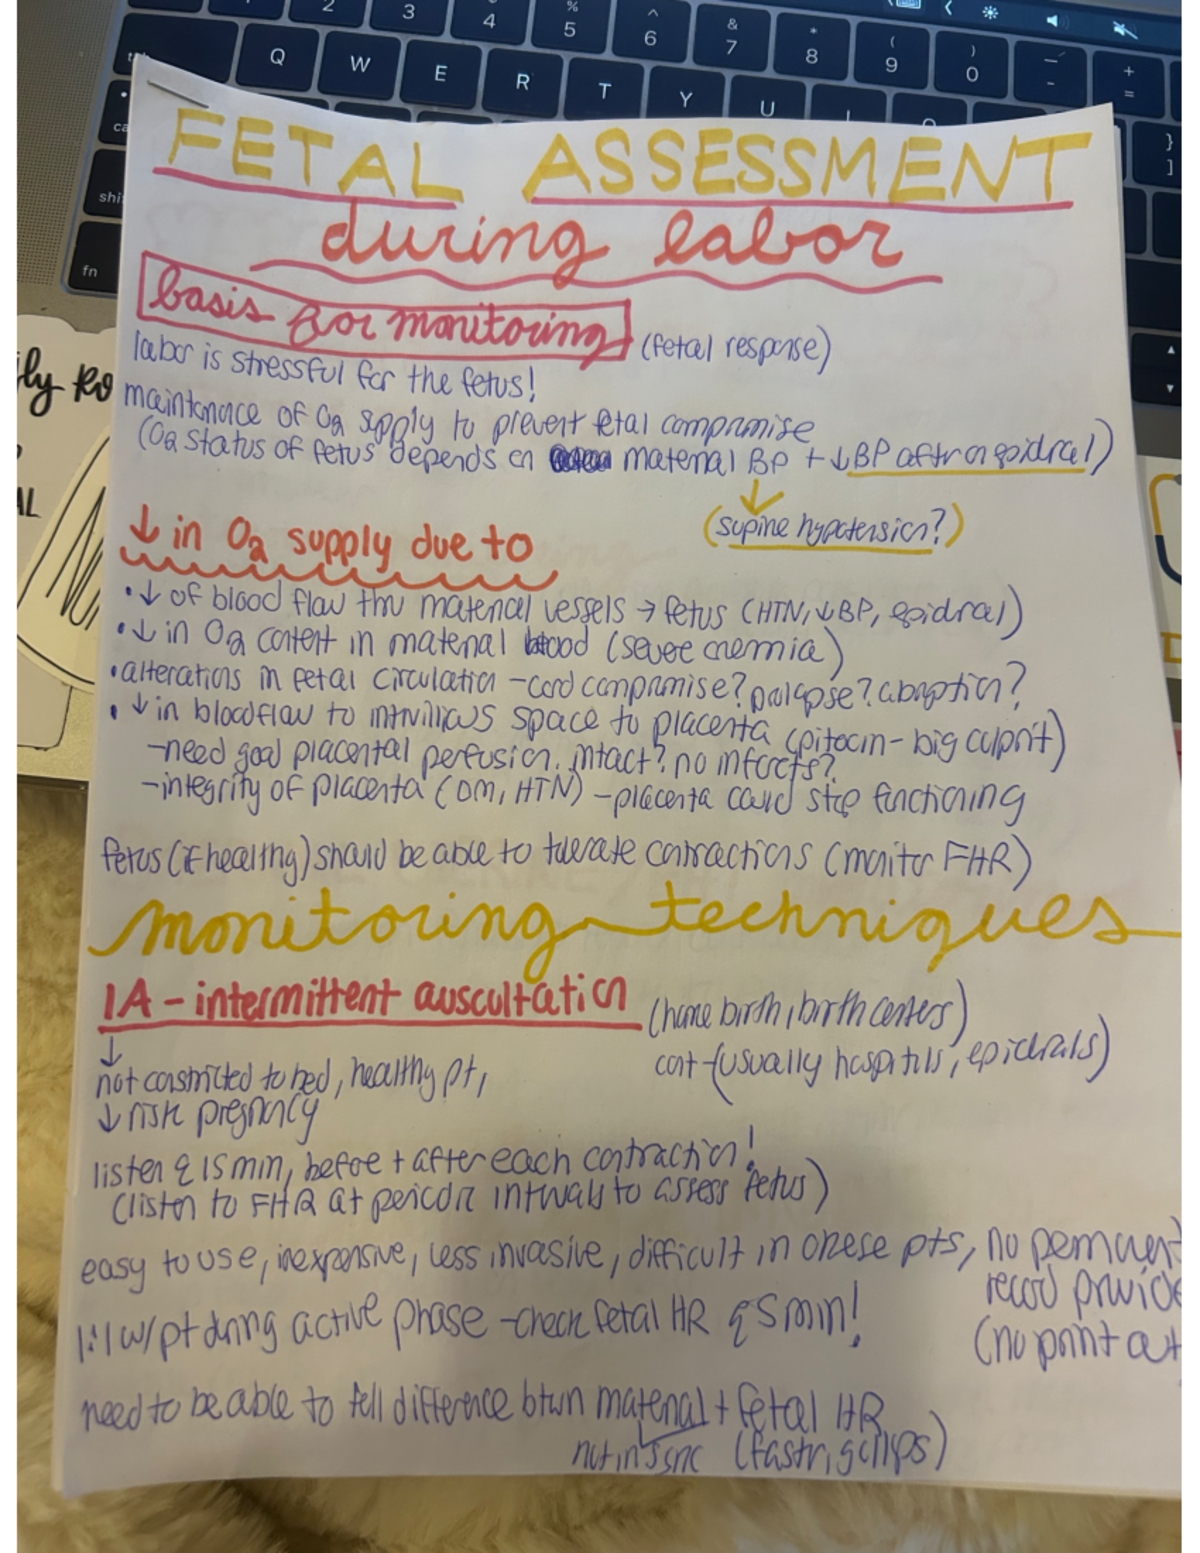 2 3 4 % 5 ^ 6 & 7 * 8 ( 9 ) 0 — - + =
Q W E R T Y U
} ]
shi
fn
ly Ro
AL
FETAL ASSESSMENT
during labor
basis for monitoring (fetal response)
labor is stressful for the fetus!
maintenance of O2 supply to prevent fetal compromise
(O2 status of fetus depends on maternal BP + ↓BP after epidural)
(supine hypotension?)
↓ in O2 supply due to
• ↓ of blood flow thru maternal vessels → fetus (HTN, ↓BP, epidural)
• ↓ in O2 content in maternal blood (severe anemia)
• alterations in fetal circulation - cord compromise? prolapse? abruption?
• ↓ in bloodflow to intrvillous space to placenta (pitocin - big culprit)
- need good placental perfusion. intact? no infarcts?
- integrity of placenta (DM, HTN) - placenta could stop functioning
fetus (if healthy) should be able to tolerate contractions (monitor FHR)
monitoring techniques
IA - intermittent auscultation (home birth, birth centers)
↓ cont - (usually hospitals, epidurals)
not constricted to bed, healthy pt,
↓ risk pregnancy
listen q 15 min, before + after each contraction!
(listen to FHR at periodic intrvals to assess fetus)
easy to use, inexpensive, less invasive, difficult in obese pts, no permanent
record provide
(no print out
1:1 w/ pt during active phase - check fetal HR q 5 min!
need to be able to tell difference btwn maternal + fetal HR
not in sync (fastr, gallops)